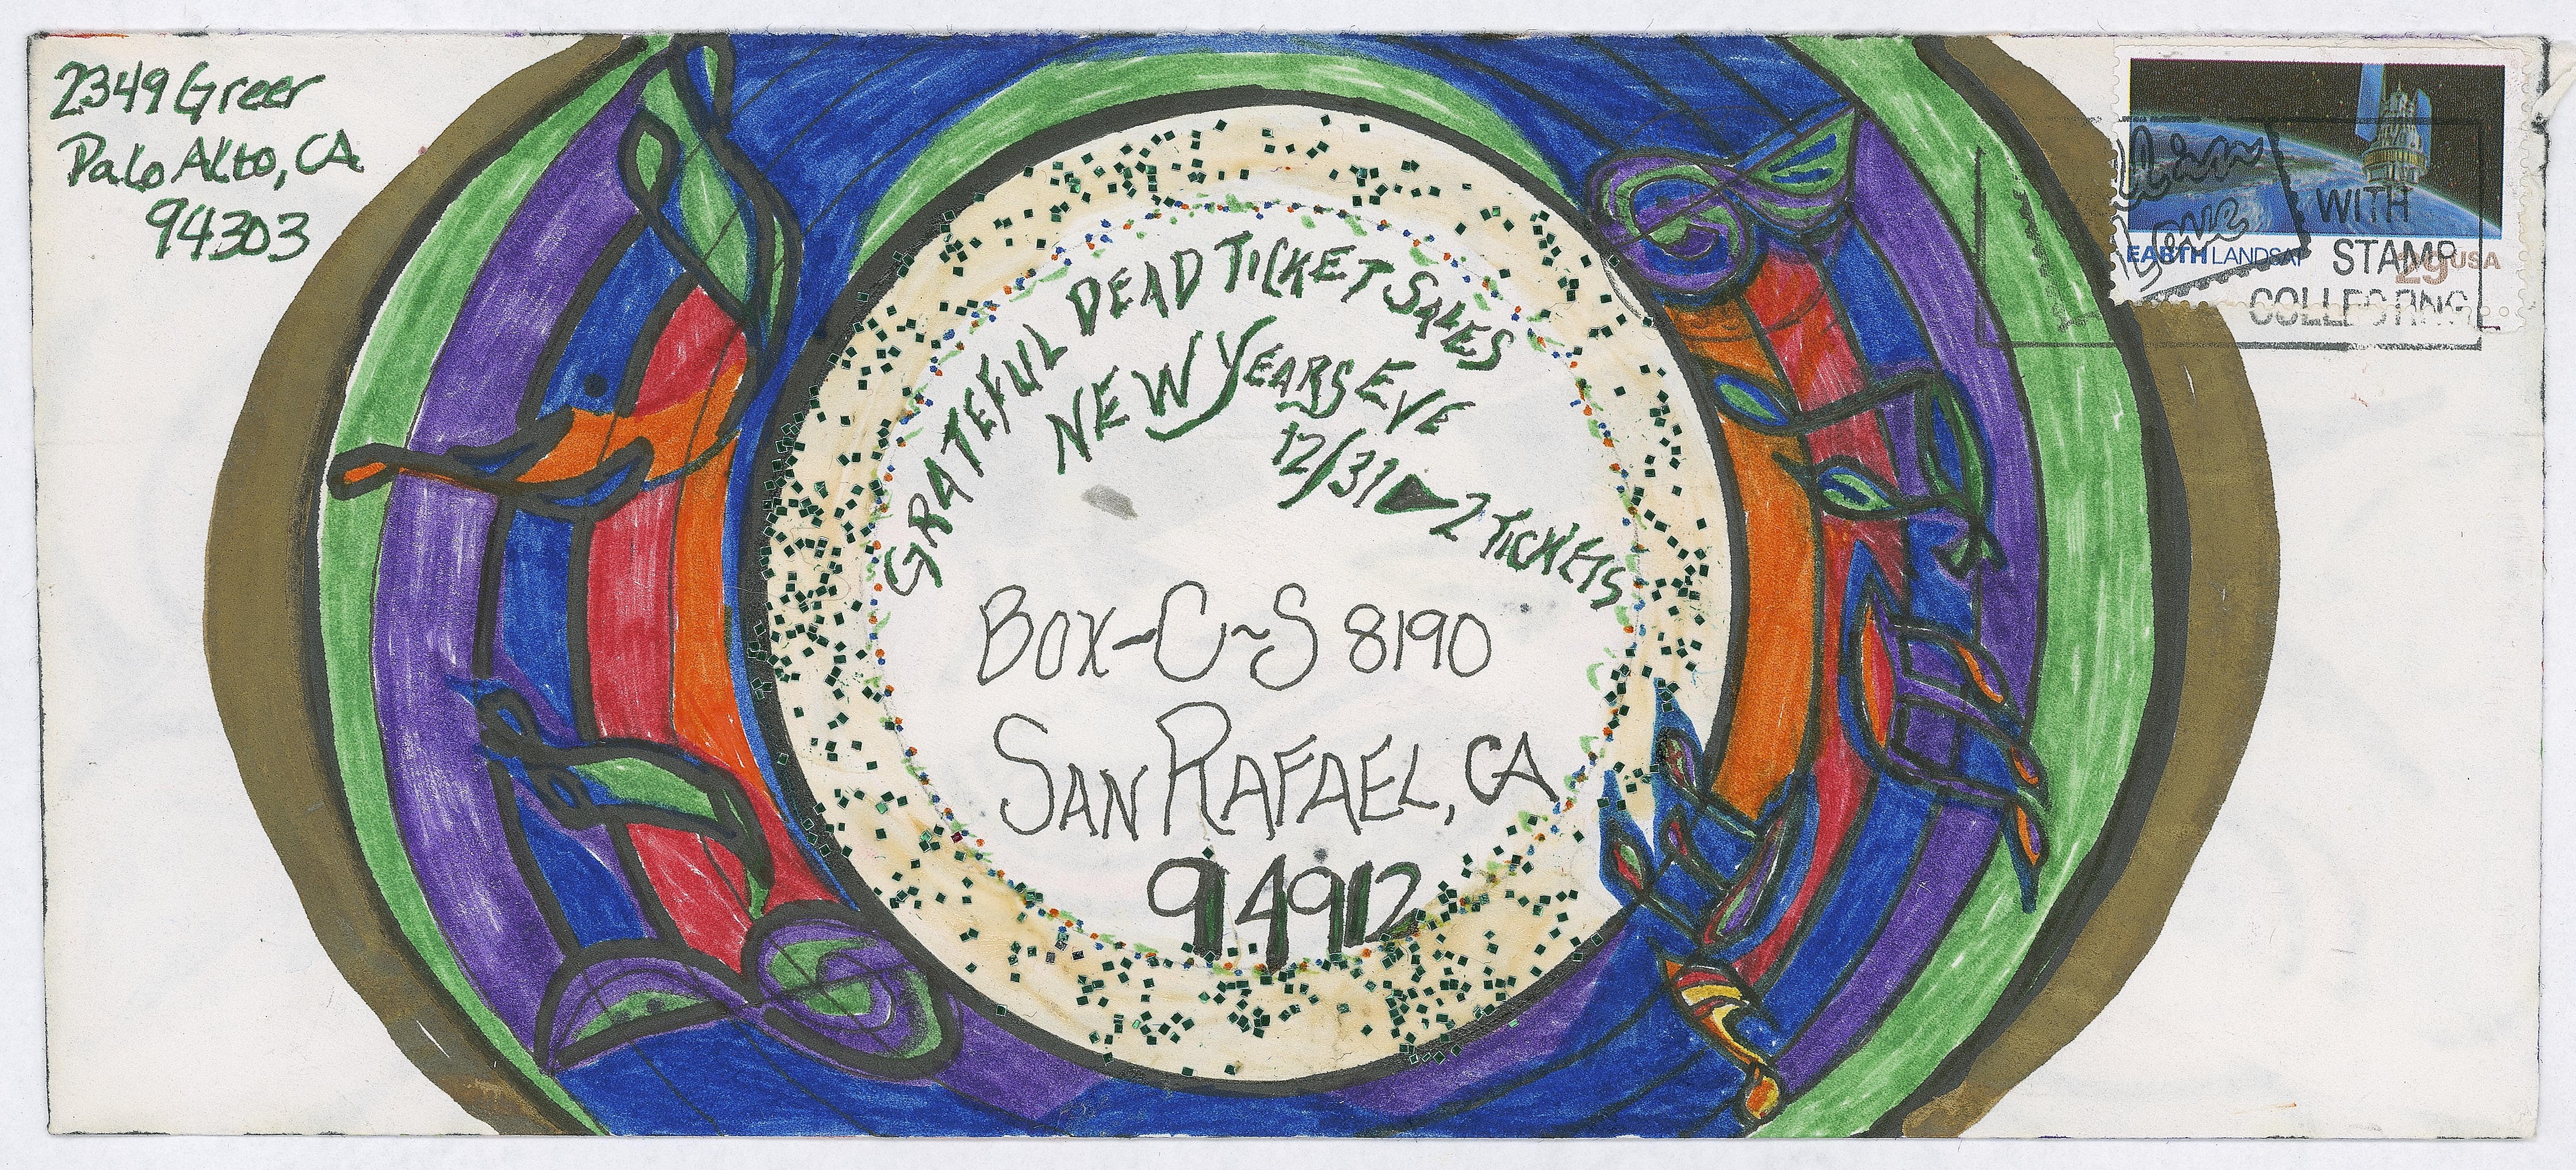 2349 Greer
Palo Alto, CA
94303
GRATEFUL DEAD TICKET SALES
NEW YEARS EVE
12/31 2 TICKETS
BOX-C~S 8190
SAN RAFAEL, CA
94912
EARTH LANDSAT
29 USA
WITH
STAMP
COLLECTING